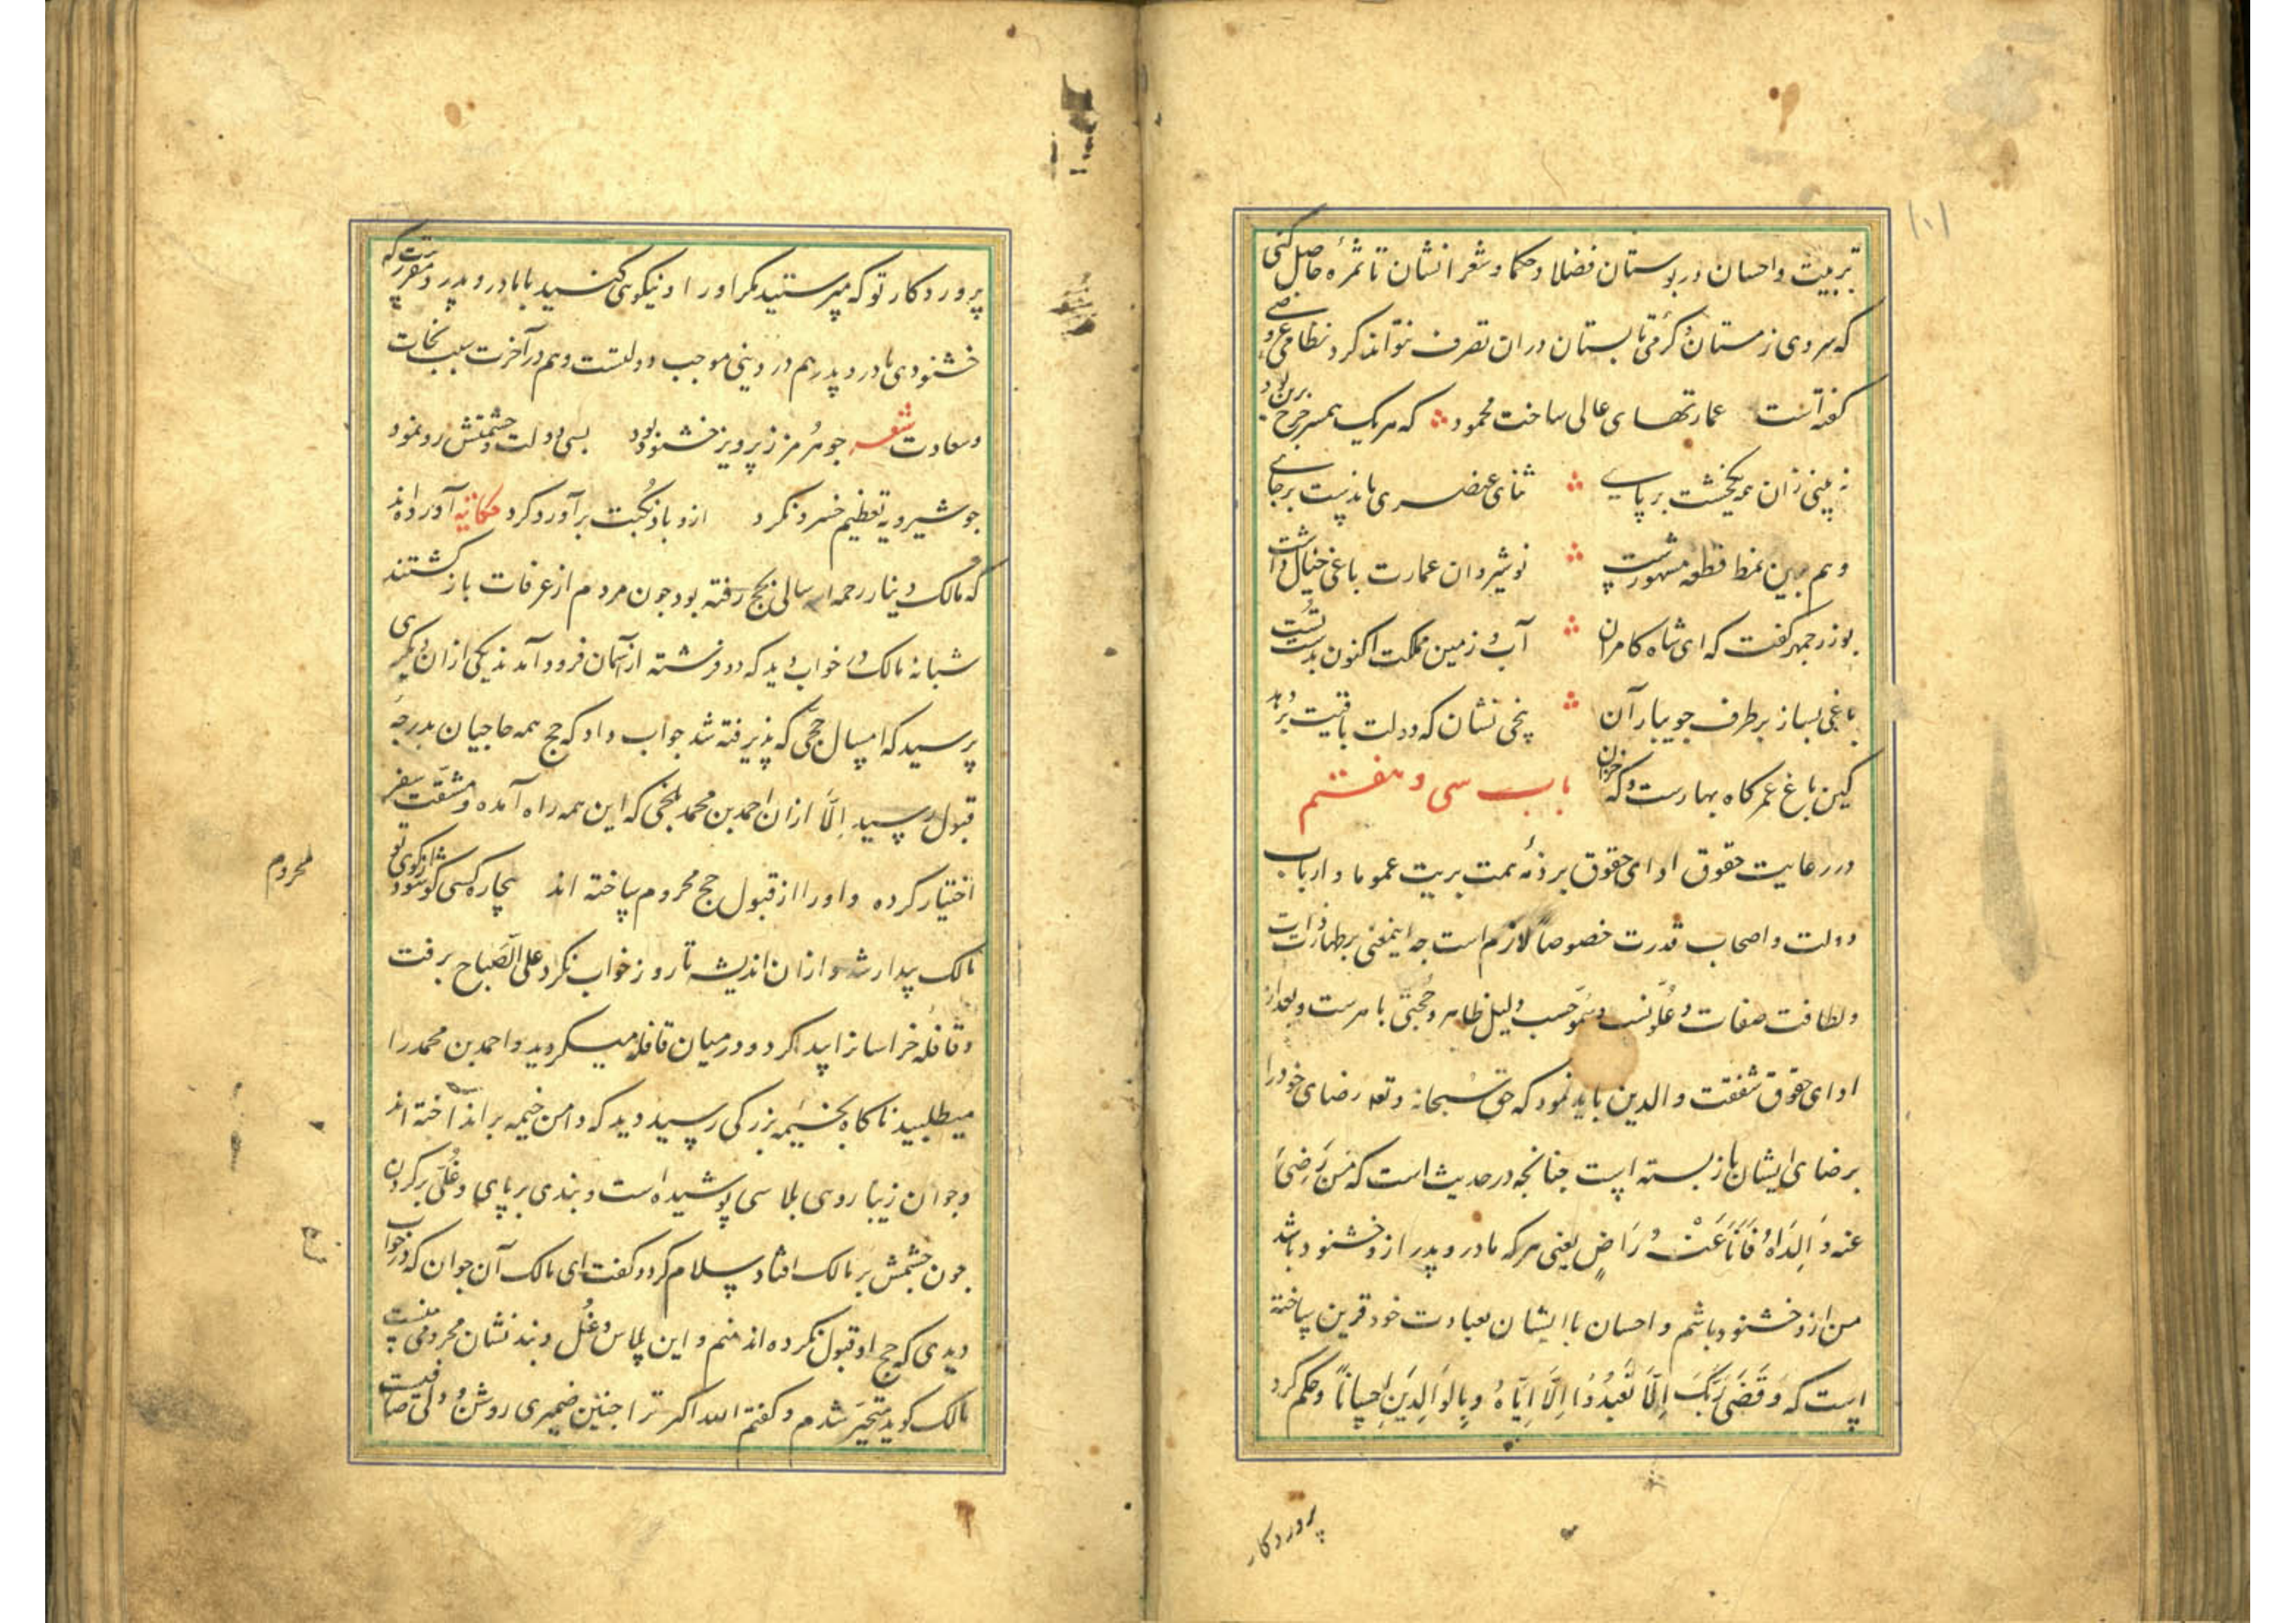 ۱۰۱
تربیت و احسان در بوستان فضلا و حکما و شعرا نشان تا ثمرهٔ حاصل کنی
که سردی زمستان و گرمی تابستان دران تصرف نتواند کرد نظامی عروضی
گفته است عمارتهای عالی ساخت محمود که هر یک همسر چرخ برین بود
نه بینی زان همه یکخشت بر پای ثنای عنصری ماندست بر جای
و هم برین نمط قطعه مشهورست نوشیروان عمارت باغی خیال داشت
بوزرجمهر گفت که ای شاه کامران آب و زمین مملکت اکنون بدست تست
باغی بساز بر طرف جویبار آن بیخی نشان که دولت باقیت بر دهد
کین باغ عمر گاه بهارست و گه خزان باب سی و هفتم
در رعایت حقوق ادای حقوق بر ذمهٔ همت بریت عموما و ارباب
دولت و اصحاب قدرت خصوصاً لازم است چه اینمعنی بر طهارت ذات
و لطافت صفات و علو نسب و سمو حسب دلیل ظاهر و حجتی باهرست و بعد از
ادای حقوق شفقت والدین باید نمود که حق سبحانه و تعه رضای خود را
برضای ایشان باز بسته است چنانچه در حدیث است که من رضی
عنه والداه فانا عنه راض یعنی هر که مادر و پدر ازو خشنود باشد
من ازو خشنود باشم و احسان با ایشان بعبادت خود قرین ساخته
است که و قضی ربک الا تعبدوا الا ایاه و بالوالدین احسانا و حکم کرد
پروردکار
پروردکار تو که مپرستید مکر او را و نیکوئی کنید با مادر و پدر و مقررست که
خشنودی مادر و پدر هم در دینی موجب دولتست و هم در آخرت سبب نجات
و سعادت شعر چو هرمز ز پرویز خشنود بود بسی دولت و حشمتش رو نمود
چو شیرویه تعظیم خسرو نکرد ازو باد نکبت بر آورد کرد حکایه آورده‌اند
که مالک دینار رحمه الله سالی بحج رفته بود چون مردم از عرفات باز کشتند
شبانه مالک در خواب دید که دو فرشته از آسمان فرود آمدند یکی ازان دیگری
پرسید که امسال حج که پذیرفته شد جواب داد که حج همه حاجیان بدرجهٔ
قبول رسید الا ازان احمد بن محمد بلخی که این همه راه آمده و مشقت سفر
اختیار کرده و او را از قبول حج محروم ساخته اند بیچاره کسی کو شود از کوی تو
محروم
مالک بیدار شد و ازان اندیشه تا روز خواب نکرد علی الصباح برفت
و قافلهٔ خراسانرا پیدا کرد و در میان قافله میکردید و احمد بن محمد را
میطلبید ناکاه بخیمه بزرکی رسید دید که دامن خیمه بر انداخته اند
و جوان زیبا روی پلاسی پوشیده است و بندی بر پای و غلی بر کردن
چون چشمش بر مالک افتاد سلام کرد و کفت ای مالک آن جوان که در خواب
دیدی که حج او قبول نکرده اند منم و این پلاس و غل و بند نشان محرومی منست
مالک کوید متحیر شدم و کفتم الله اکبر ترا چنین ضمیری روشن و دلی صافیست